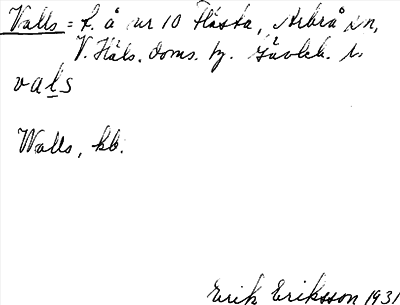 Valls = f. å nr 10 Flästa, Arbrå sn,
V. Häls. doms. tg. Gävleb. l.
vals
Walls, kb.
Erik Eriksson 1931